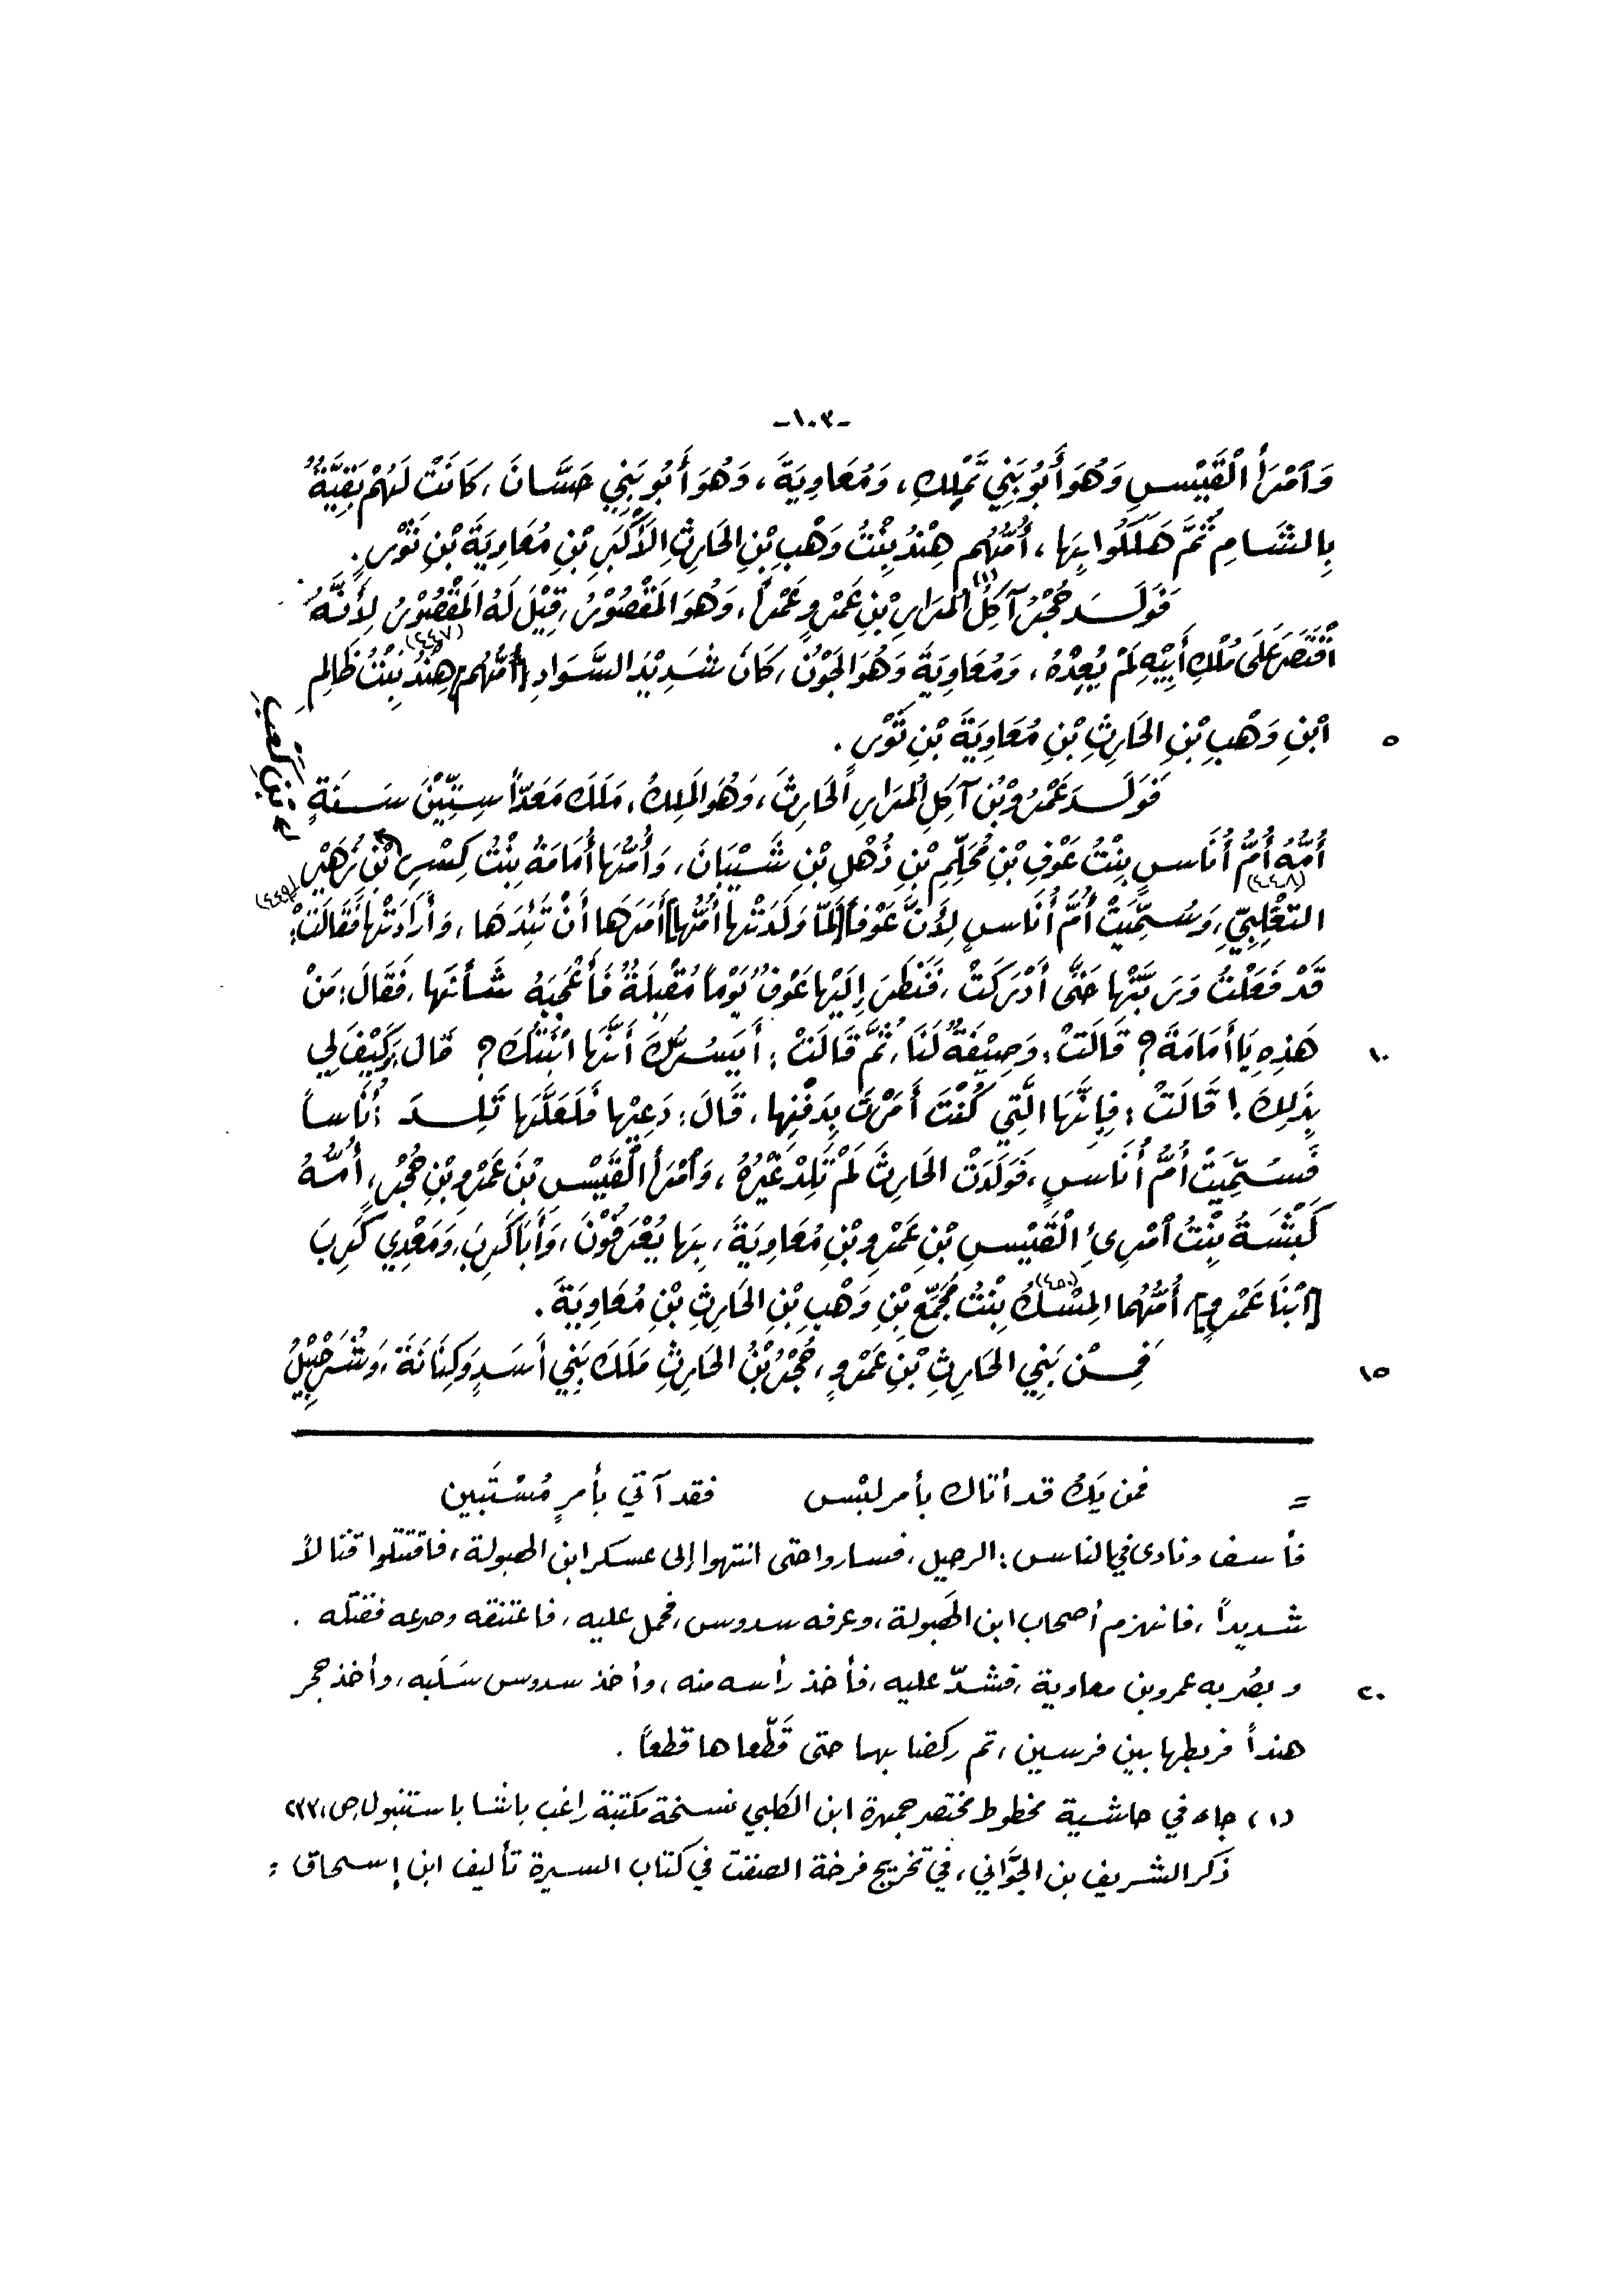 -١٠٣-
وَٱمْرَأَ ٱلْقَيْسِ وَهُوَ أَبُو بَنِي تَمْلِكَ، وَمُعَاوِيَةَ، وَهُوَ أَبُو بَنِي حَسَّانَ، كَانَتْ لَهُمْ بَقِيَّةٌ
بِالشَّامِ ثُمَّ هَلَكُوا بِهَا، أُمُّهُم هِنْدُ بِنْتُ وَهْبِ بْنِ الحَارِثِ الأَكْبَرِ بْنِ مُعَاوِيَةَ بْنِ ثَوْرٍ.
فَوَلَدَ حُجْرُ آكِلُ(١) المُرَارِ بْنِ عَمْرٍو عَمْراً، وَهُوَ المَقْصُوْرُ، قِيْلَ لَهُ المَقْصُوْرُ لِأَنَّهُ
ٱقْتَصَرَ عَلَى مُلْكِ أَبِيْهِ لَمْ يُعِدْهُ، وَمُعَاوِيَةَ وَهُوَ الجَوْنُ، كَانَ شَدِيْدَ السَّوَادِ [أُمُّهُم] هِنْدُ(٤٤٧) بِنْتُ ظَالِمِ
٥ ٱبْنِ وَهْبِ بْنِ الحَارِثِ بْنِ مُعَاوِيَةَ بْنِ ثَوْرٍ.
فَوَلَدَ عَمْرُو بْنُ آكِلِ المُرَارِ الحَارِثَ، وَهُوَ المَلِكُ، مَلَكَ مَعَدّاً سِتِّيْنَ سَنَةً
أُمُّهُ أُمُّ أُنَاسٍ(٤٤٨) بِنْتُ عَوْفِ بْنِ مُحَلِّمِ بْنِ ذُهْلِ بْنِ شَيْبَانَ، وَأُمُّهَا أُمَامَةُ بِنْتُ كِسْرِ بْنِ كَعْبِ بْنِ زُهَيْرٍ(٤٤٩)
التَّغْلِبِيِّ، وَسُمِّيَتْ أُمَّ أُنَاسٍ لِأَنَّ عَوْفاً [لَمّا وَلَدَتْها أُمُّها] أَمَرَهَا أَنْ تَئِدَهَا، وَأَرَادَتْها فَقَالَتْ:
قَدْ فَعَلْتُ وَرَبَّتْهَا حَتَّى أَدْرَكَتْ، فَنَظَرَ إِلَيْها عَوْفٌ يَوْماً مُقْبِلَةً فَأَعْجَبَهُ شَأْنُها، فَقَالَ: مَنْ
١٠ هَذِهِ يَا أُمَامَةَ؟ قَالَتْ: وَصِيْفَةٌ لَنَا، ثُمَّ قَالَتْ: أَيَسُرُّكَ أَنَّهَا ٱبْنَتُكَ؟ قَالَ: وَكَيْفَ لِي
بِذَلِكَ! قَالَتْ: فَإِنَّهَا الَّتِي كُنْتَ أَمَرْتَ بِدَفْنِها، قَالَ: دَعِيْها فَلَعَلَّها تَلِدَ أُنَاساً
فَسُمِّيَتْ أُمَّ أُنَاسٍ، فَوَلَدَتْ الحَارِثَ لَمْ تَلِدْ غَيْرَهُ، وَٱمْرَأَ ٱلْقَيْسِ بْنَ عَمْرِو بْنِ حُجْرٍ، أُمُّهُ
كَبْشَةُ بِنْتُ ٱمْرِئِ ٱلْقَيْسِ بْنِ عَمْرِو بْنِ مُعَاوِيَةَ، بِهَا يُعْرَفُوْنَ، وَأَبَا كَرِبَ، وَمَعْدِي كَرِبَ
[ٱبْنَا عَمْرٍو]، أُمُّهُما المِسْكُ(٤٥٠) بِنْتُ مُجَمِّعِ بْنِ وَهْبِ بْنِ الحَارِثِ بْنِ مُعَاوِيَةَ.
١٥ فَمِنْ بَنِي الحَارِثِ بْنِ عَمْرٍو، حُجْرُ بْنُ الحَارِثِ مَلَكَ بَنِي أَسَدٍ وَكِنَانَةَ، وَشُرَحْبِيْلُ
= فمن يَكُ قد أتاك بأمر لَبْسٍ فقد آتي بأمرٍ مُسْتَبين
فأسف ونادى في الناس: الرحيل، فساروا حتى انتهوا إلى عسكر ابن الهبولة، فاقتتلوا قتالاً
شديداً، فانهزم أصحاب ابن الهَبولة، وعرفه سدوس، فحمل عليه، فاعتنقه وصرعه فقتله.
٢٠ وبصُر به عمرو بن معاوية، فشدّ عليه، فأخذ رأسه منه، وأخذ سدوس سَلَبه، وأخذ حجر
هنداً فربطها بين فرسين، ثم ركضا بها حتى قَطّعاها قطعاً.
(١) جاء في حاشية مخطوط مختصر جمهرة ابن الكلبي نسخة مكتبة راغب باشا باستنبول، ص، ٢٣٣
ذكر الشريف بن الجوَّاني، في تخريج فرخة الصنقت في كتاب السيرة تأليف ابن إسحاق =